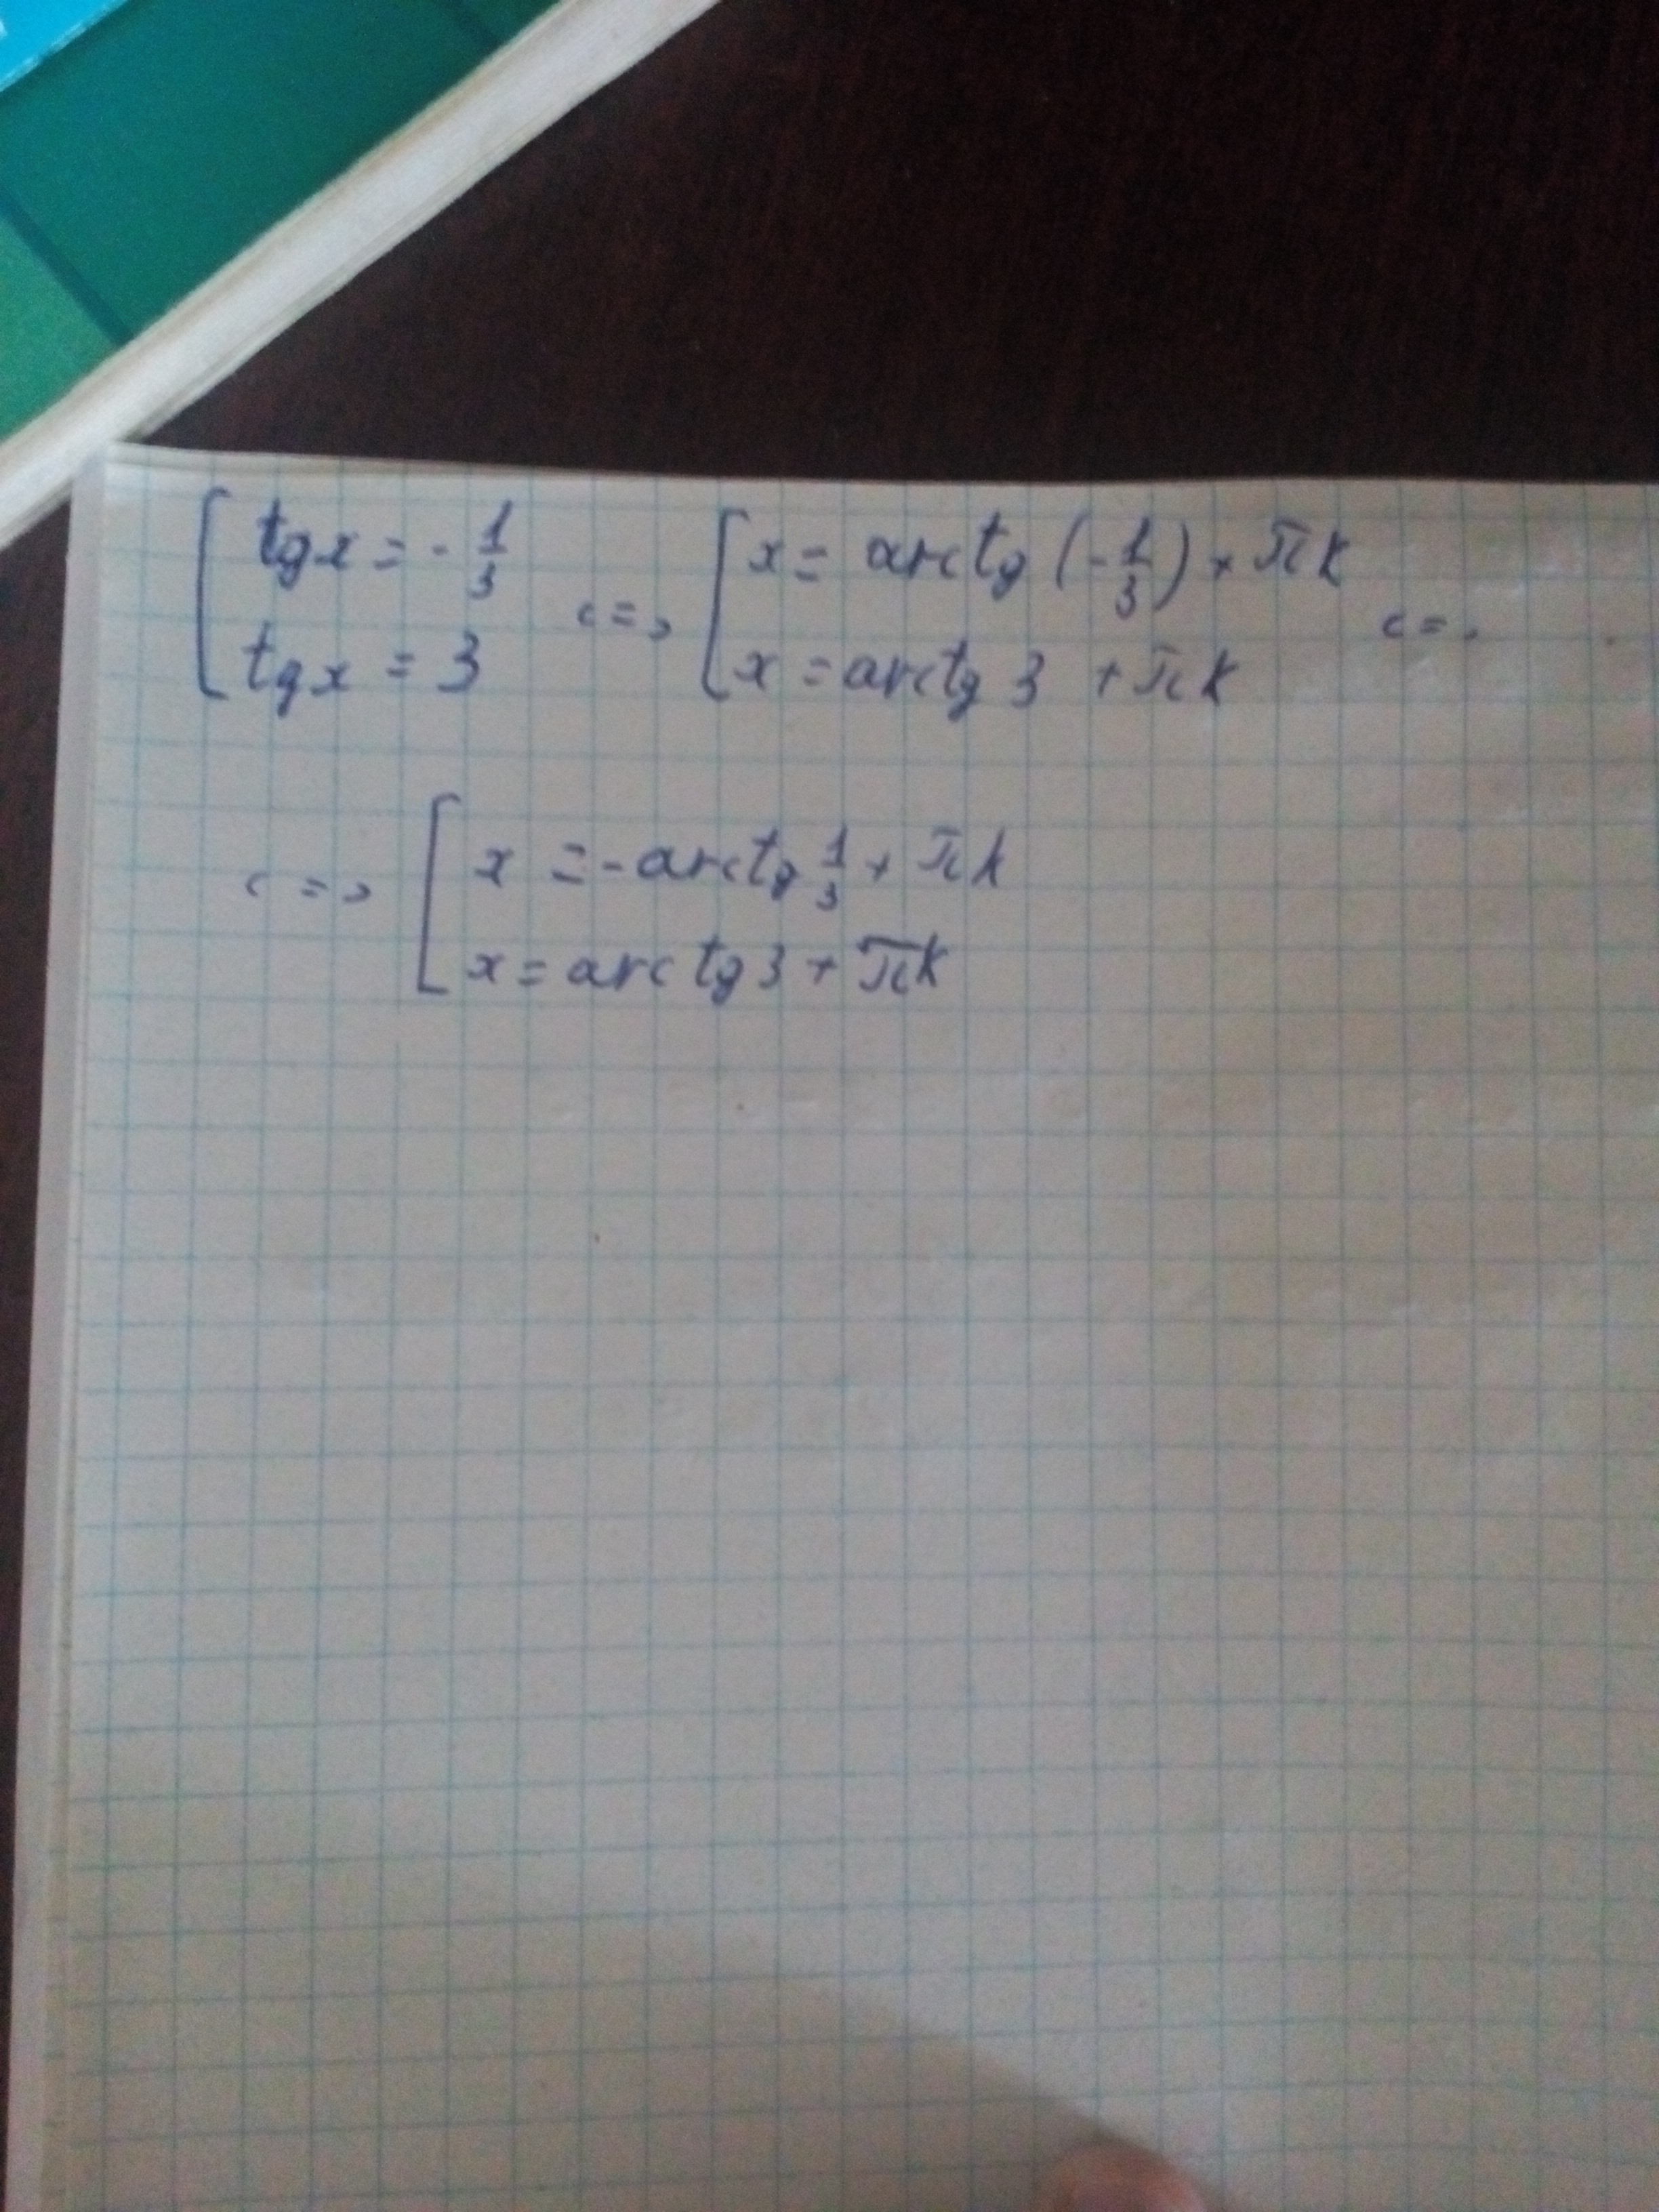 [ tgx = -1/3 <=> [ x = arctg (-1/3) + πk <=>
[ tgx = 3 [ x = arctg 3 + πk
<=> [ x = -arctg 1/3 + πk
[ x = arctg 3 + πk